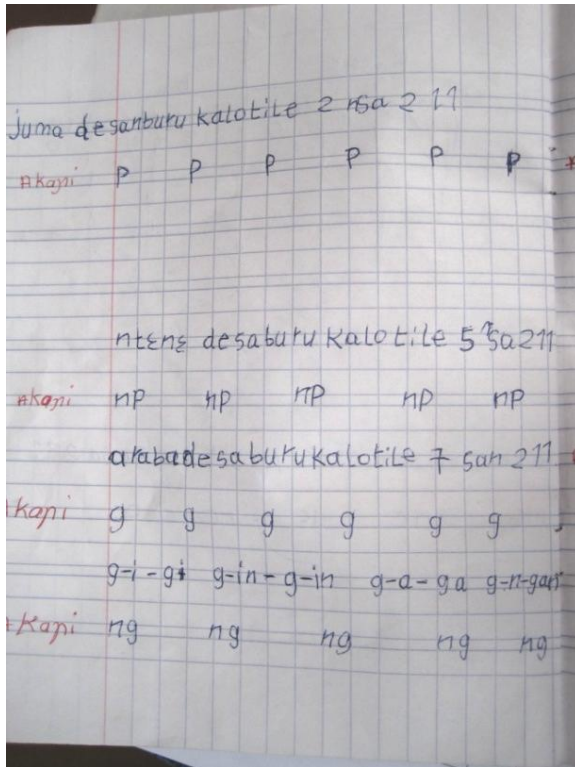 juma desanburu kalotile 2 nsa 211
Akapi p p p p p p
ntɛnɛ desaburu kalo tile 5 sa 211
Akapi np np np np np
arabadesaburukalotile 7 san 211
kapi g g g g g g
g-i-gi g-in-g-in g-a-ga g-n-gan
kapi ng ng ng ng ng